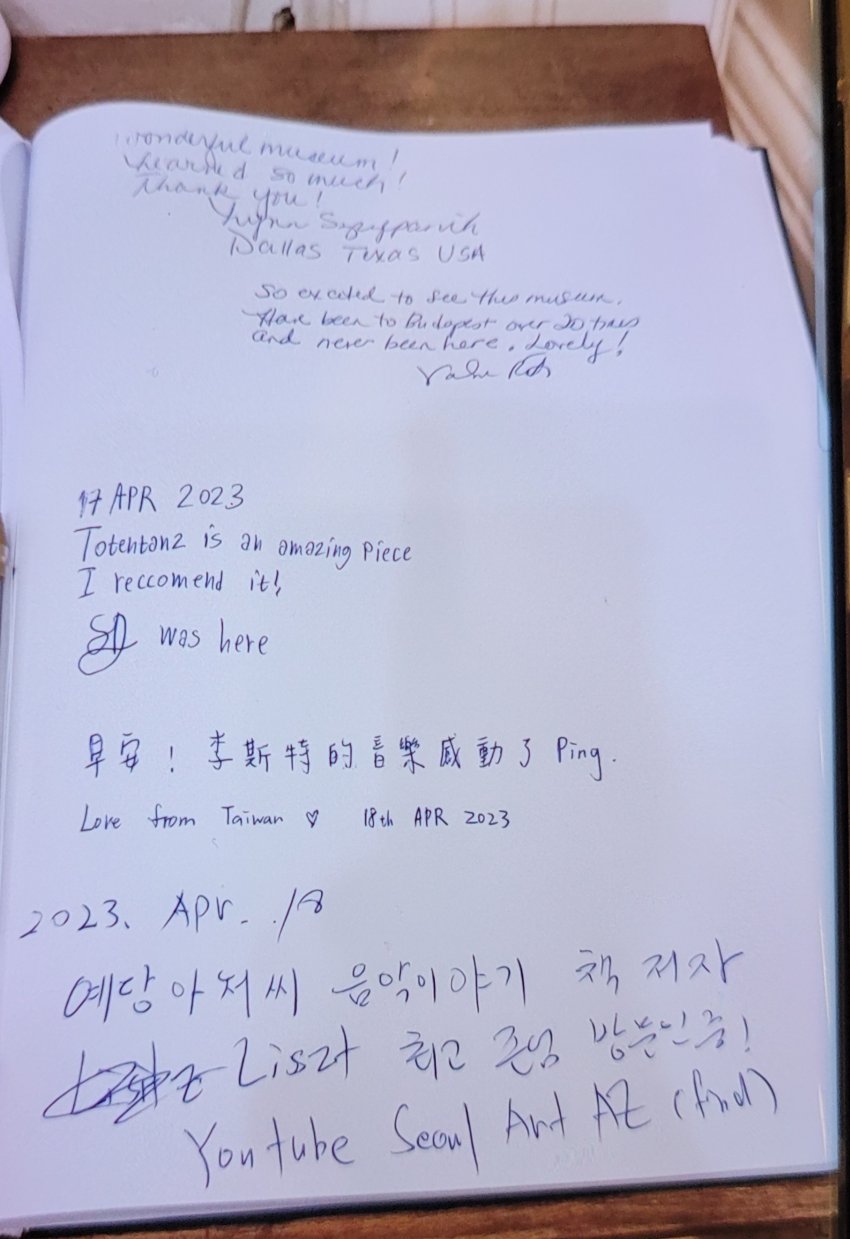 Wonderful museum!
Learned so much!
Thank you!
Lynn Szczepanik
Dallas Texas USA
So excited to see this museum.
Have been to Budapest over 20 times
and never been here. Lovely!
17 APR 2023
Totentanz is an amazing piece
I reccomend it!
was here
早安！李斯特的音樂感動了 Ping.
Love from Taiwan ♡ 18th APR 2023
2023. Apr. 18
예당아저씨 음악이야기 책 저자
Liszt 최고 존엄 방문인증!
Youtube Seoul Art AZ (find)